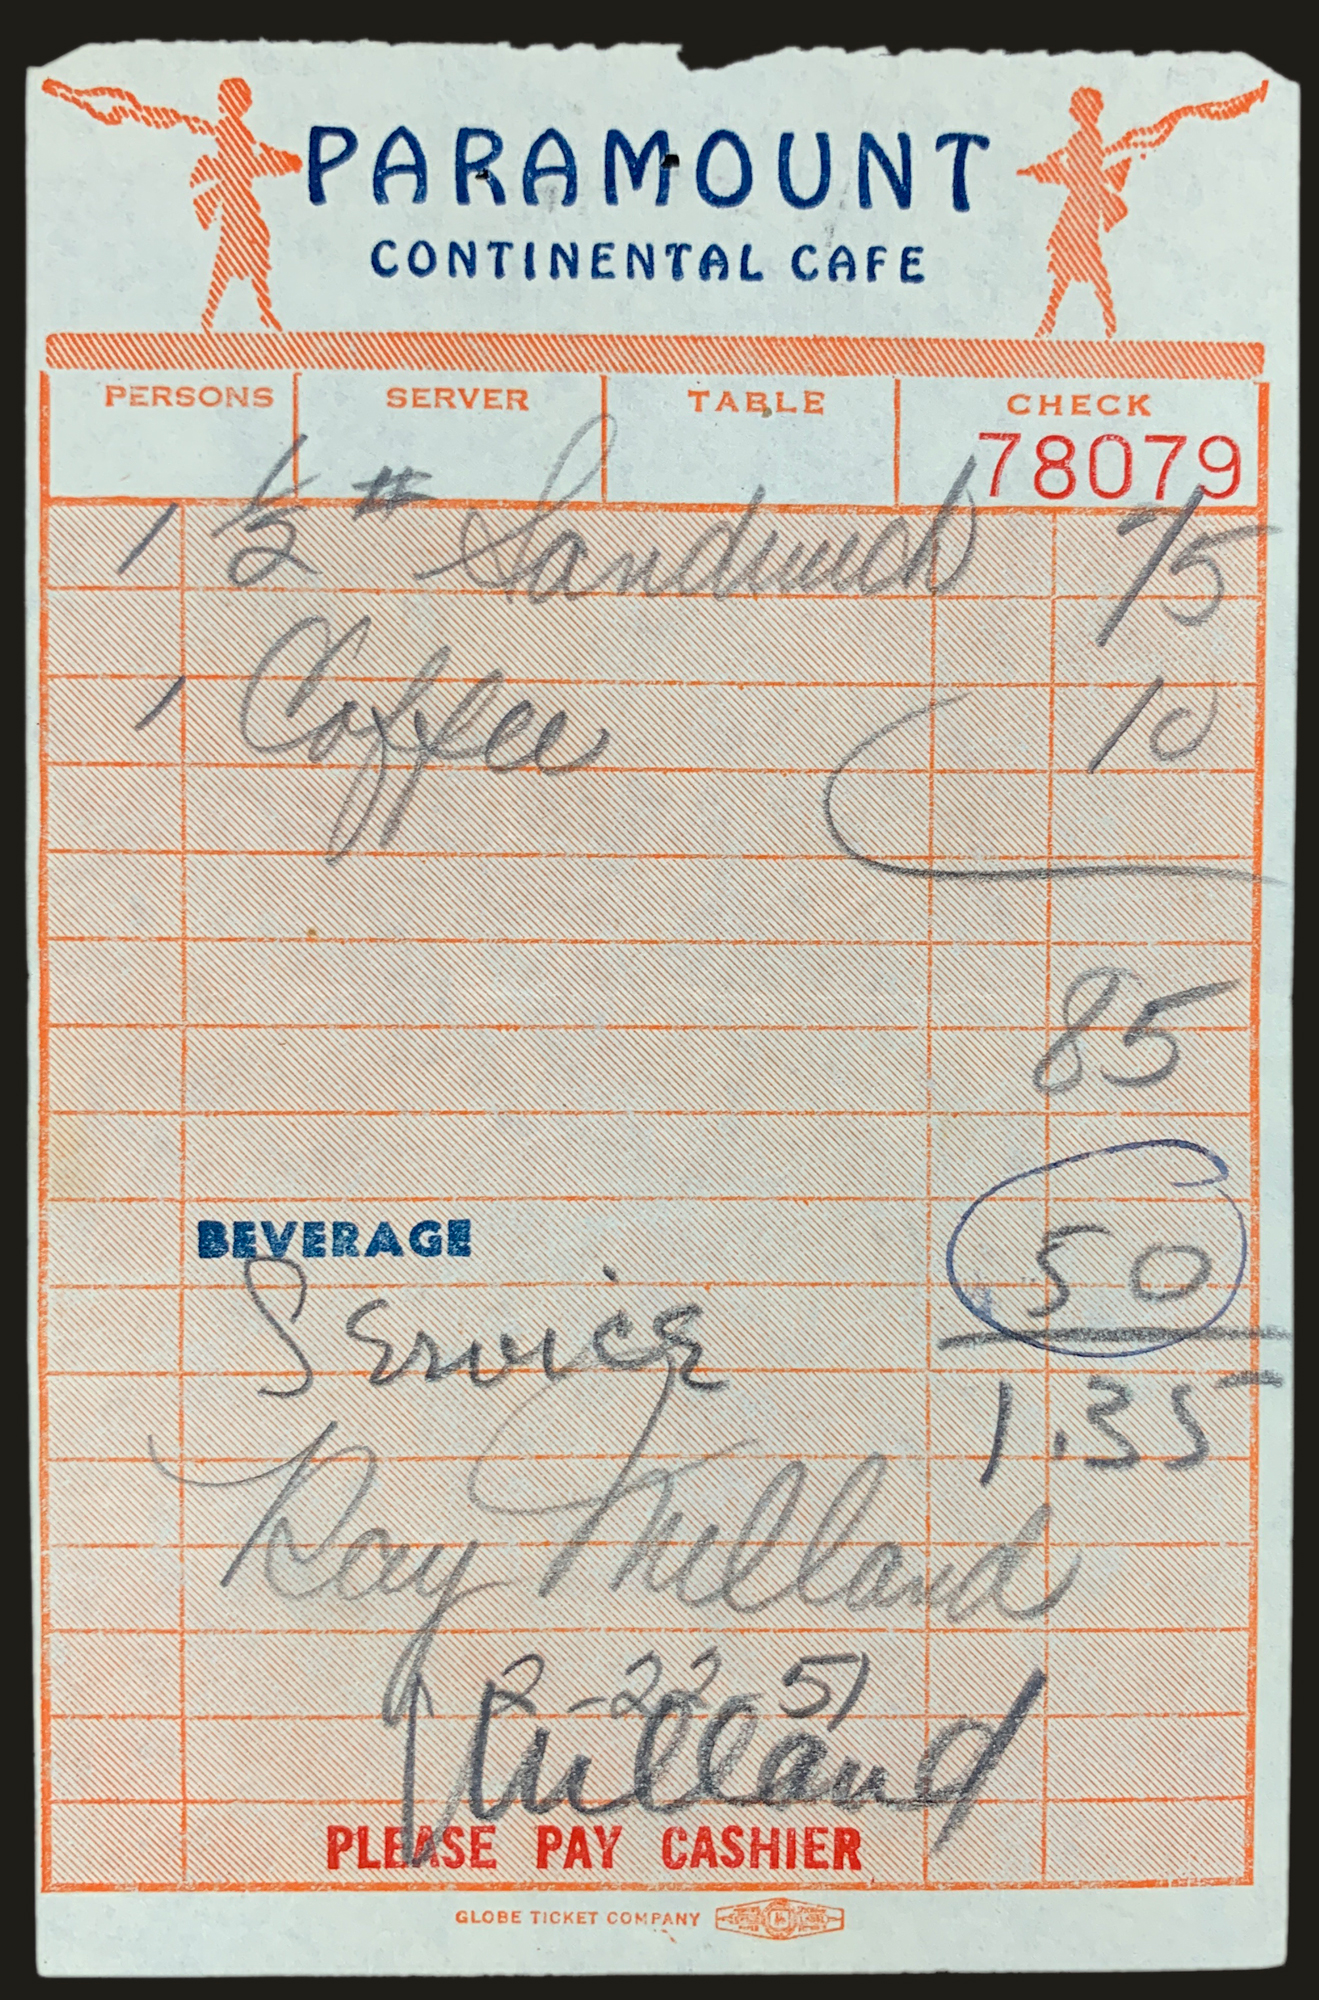 PARAMOUNT
CONTINENTAL CAFE
PERSONS SERVER TABLE CHECK
78079
1 1/2 # Sandwich 75
1 Coffee 10
85
BEVERAGE 50
Service
1.35
Ray Milland
2-22-51
RMilland
PLEASE PAY CASHIER
GLOBE TICKET COMPANY